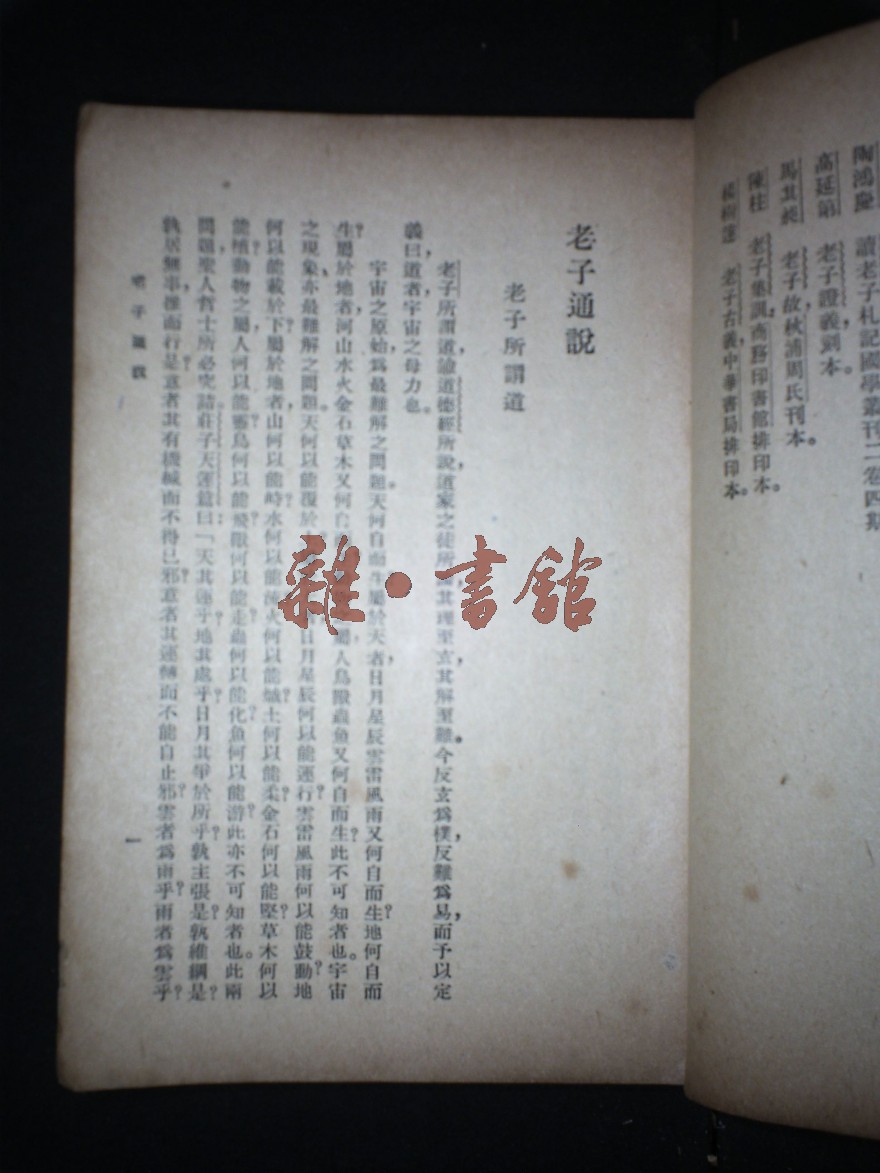 陶鴻慶 讀老子札記國學叢刊二卷四期
高延第 老子證義刻本。
馬其昶 老子故秋浦周氏刊本。
陳柱 老子集訓，商務印書館排印本。
楊樹達 老子古義中華書局排印本。
老子通說
老子所謂道
老子所謂道，論道德經所說，道家之徒所，其理至玄，其解至難。今反玄爲樸，反難爲易，而予以定
義曰，道者，宇宙之母力也。
宇宙之原始，爲最難解之問題。天何自而生？屬於天者，日月星辰雲雷風雨又何自而生？地何自而
生？屬於地者，河山水火金石草木又何自人鳥獸蟲魚又何自而生？此不可知者也。宇宙
之現象，亦最難解之問題。天何以能覆於日月星辰何以能運行？雲雷風雨何以能鼓動？地
何以能載於下？屬於地者，山何以能峙？水何以能流？火何以能爐？土何以能柔？金石何以能堅？草木何以
能植？動物之屬，人何以能靈？鳥何以能飛？獸何以能走？蟲何以能化？魚何以能游？此亦不可知者也。此兩
問題，聖人哲士所必究詰。莊子天運篇曰：「天其運乎？地其處乎？日月其爭於所乎？孰主張是？孰維綱是？
孰居無事，推而行是？意者其有機緘而不得已邪？意者其運轉而不能自止邪？雲者爲雨乎？雨者爲雲乎？
老子通說
一
雜·書館